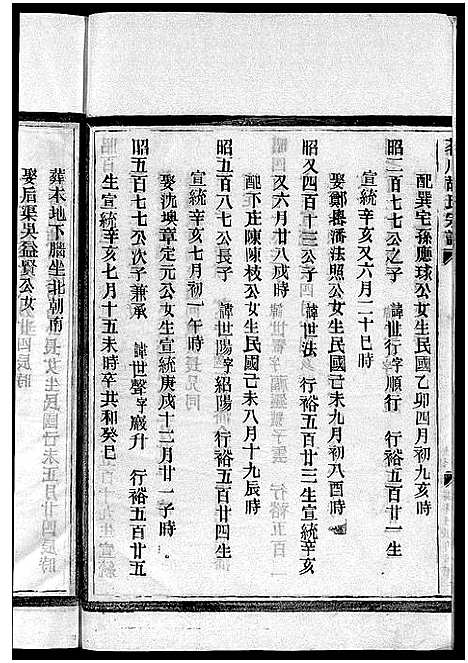 昭二百七七公之子 諱世行字順行 行裕五百廿一生
宣統辛亥又六月二十巳時
配巽宅孫應球公女生民國乙卯四月初九亥時
昭又四百十三公子 諱世法 行裕五百廿三生宣統辛亥
又六月廿八戌時
娶鄭村潘法照公女生民國己未九月初八酉時
昭五百八七公長子 諱世陽字紹陽 行裕五百廿四生
宣統辛亥七月初一午時
配下庄陳陳枝公女生民國己未八月十九辰時
昭五百七七公次子兼承 諱世聲字嚴升 行裕五百廿五
生宣統辛亥七月十五未時卒共和癸巳
娶沈墺章定元公女生宣統庚戌十二月廿一子時
葬本地下腦坐北朝南
娶后渠吳益賢公女